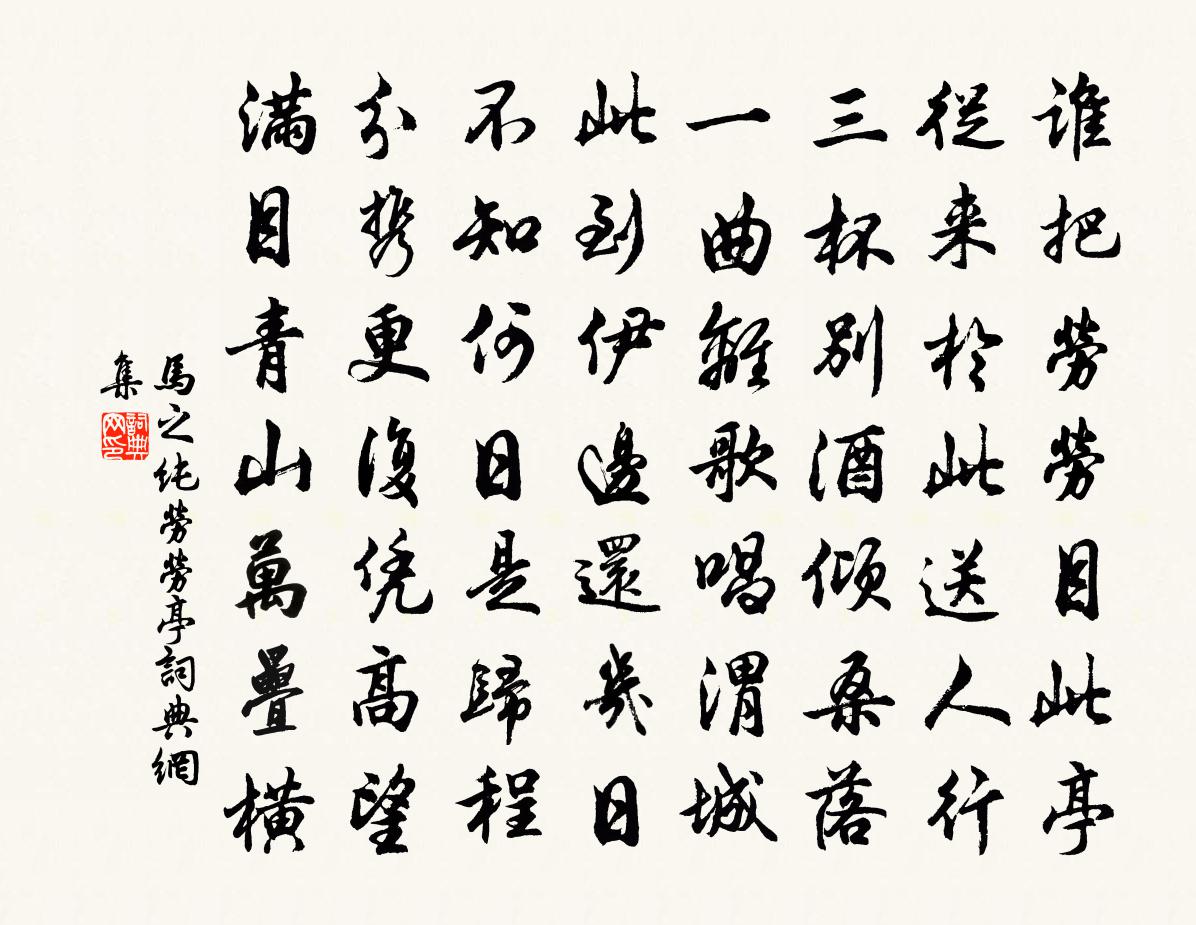 谁把勞勞目此亭
從来於此送人行
三杯别酒傾桑落
一曲離歌唱渭城
此到伊邊還幾日
不知何日是歸程
分攜更復凭高望
滿目青山萬疊橫
馬之純勞勞亭詞典網
集
詞典
网印